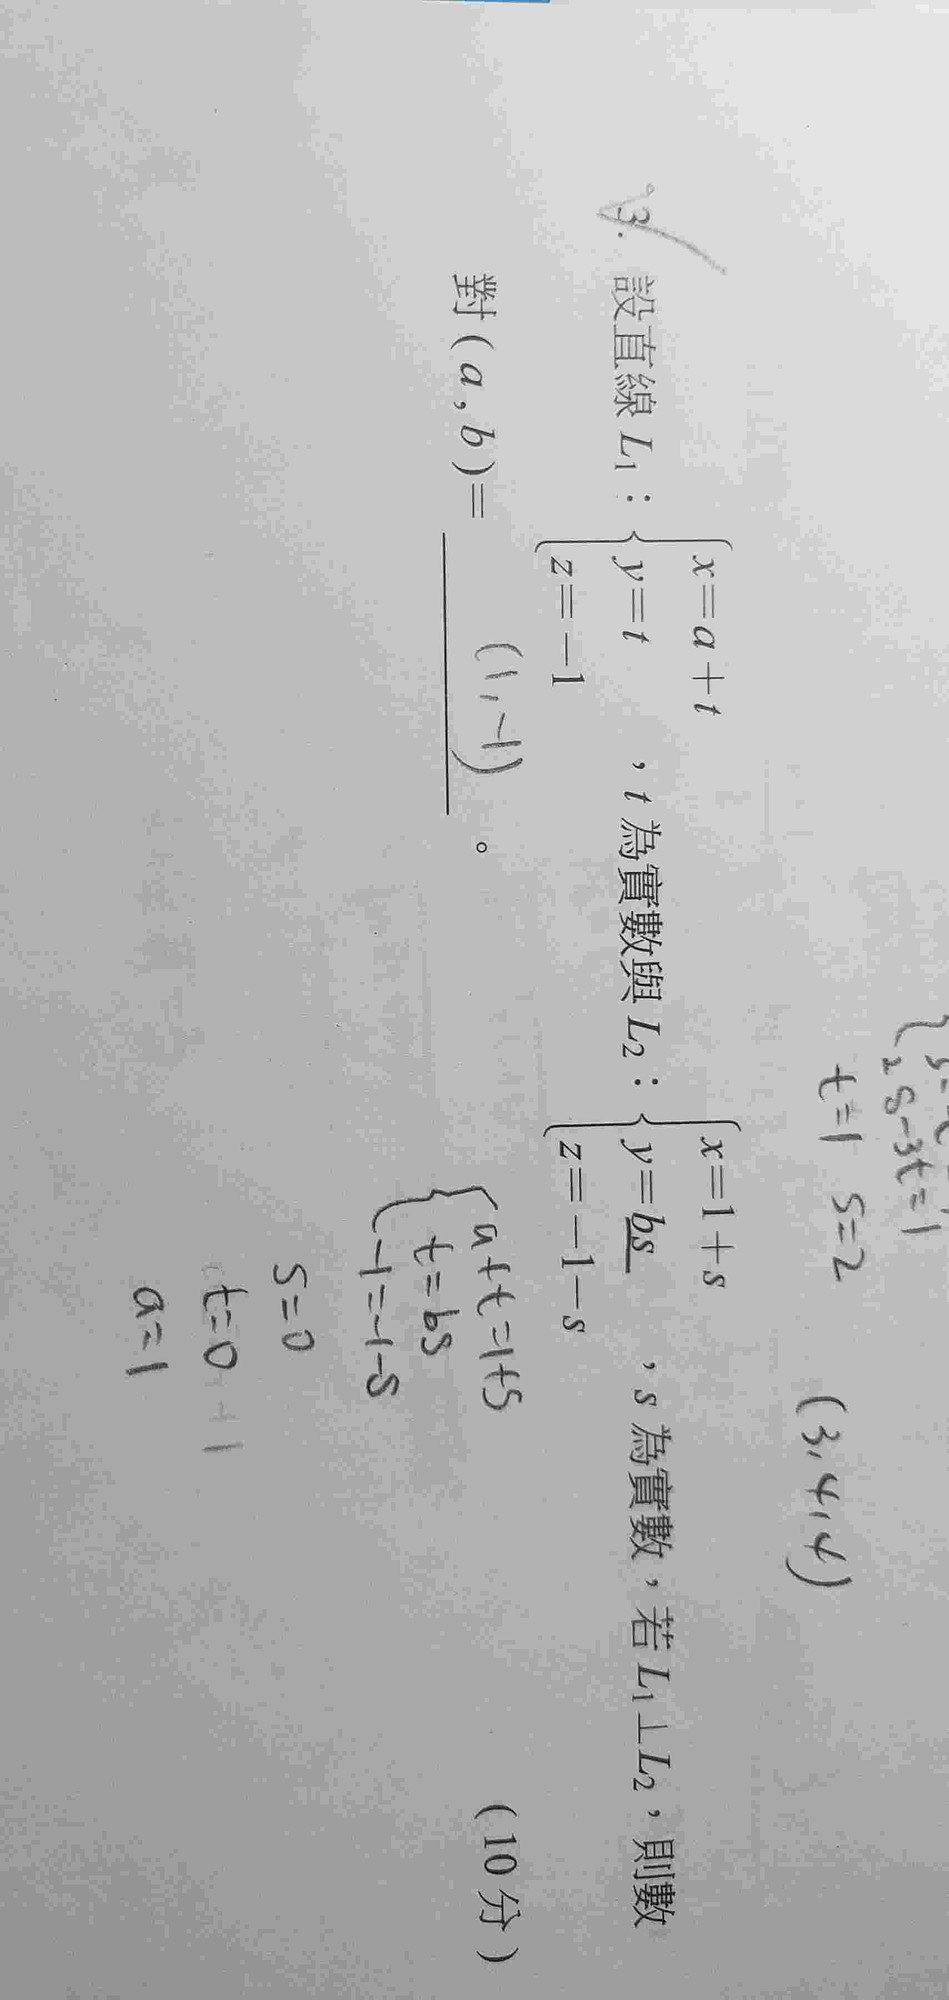 2s-3t=1
t=1 s=2 (3,4,4)
3. 設直線 L₁：{x=a+t, y=t, z=-1，t 為實數與 L₂：{x=1+s, y=bs, z=-1-s，s 為實數，若 L₁⊥L₂，則數
對(a,b)= (1,-1) 。 (10 分)
a+t=1+s
t=bs
-1=-1-s
s=0
t=0
a=1